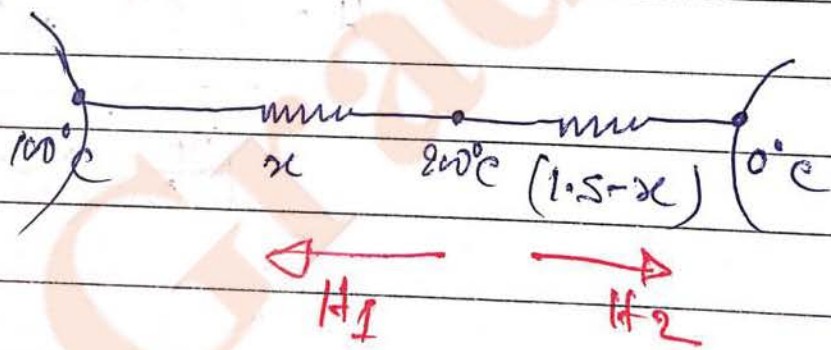 100°C x 200°C (1.5-x) 0°C
H1 H2